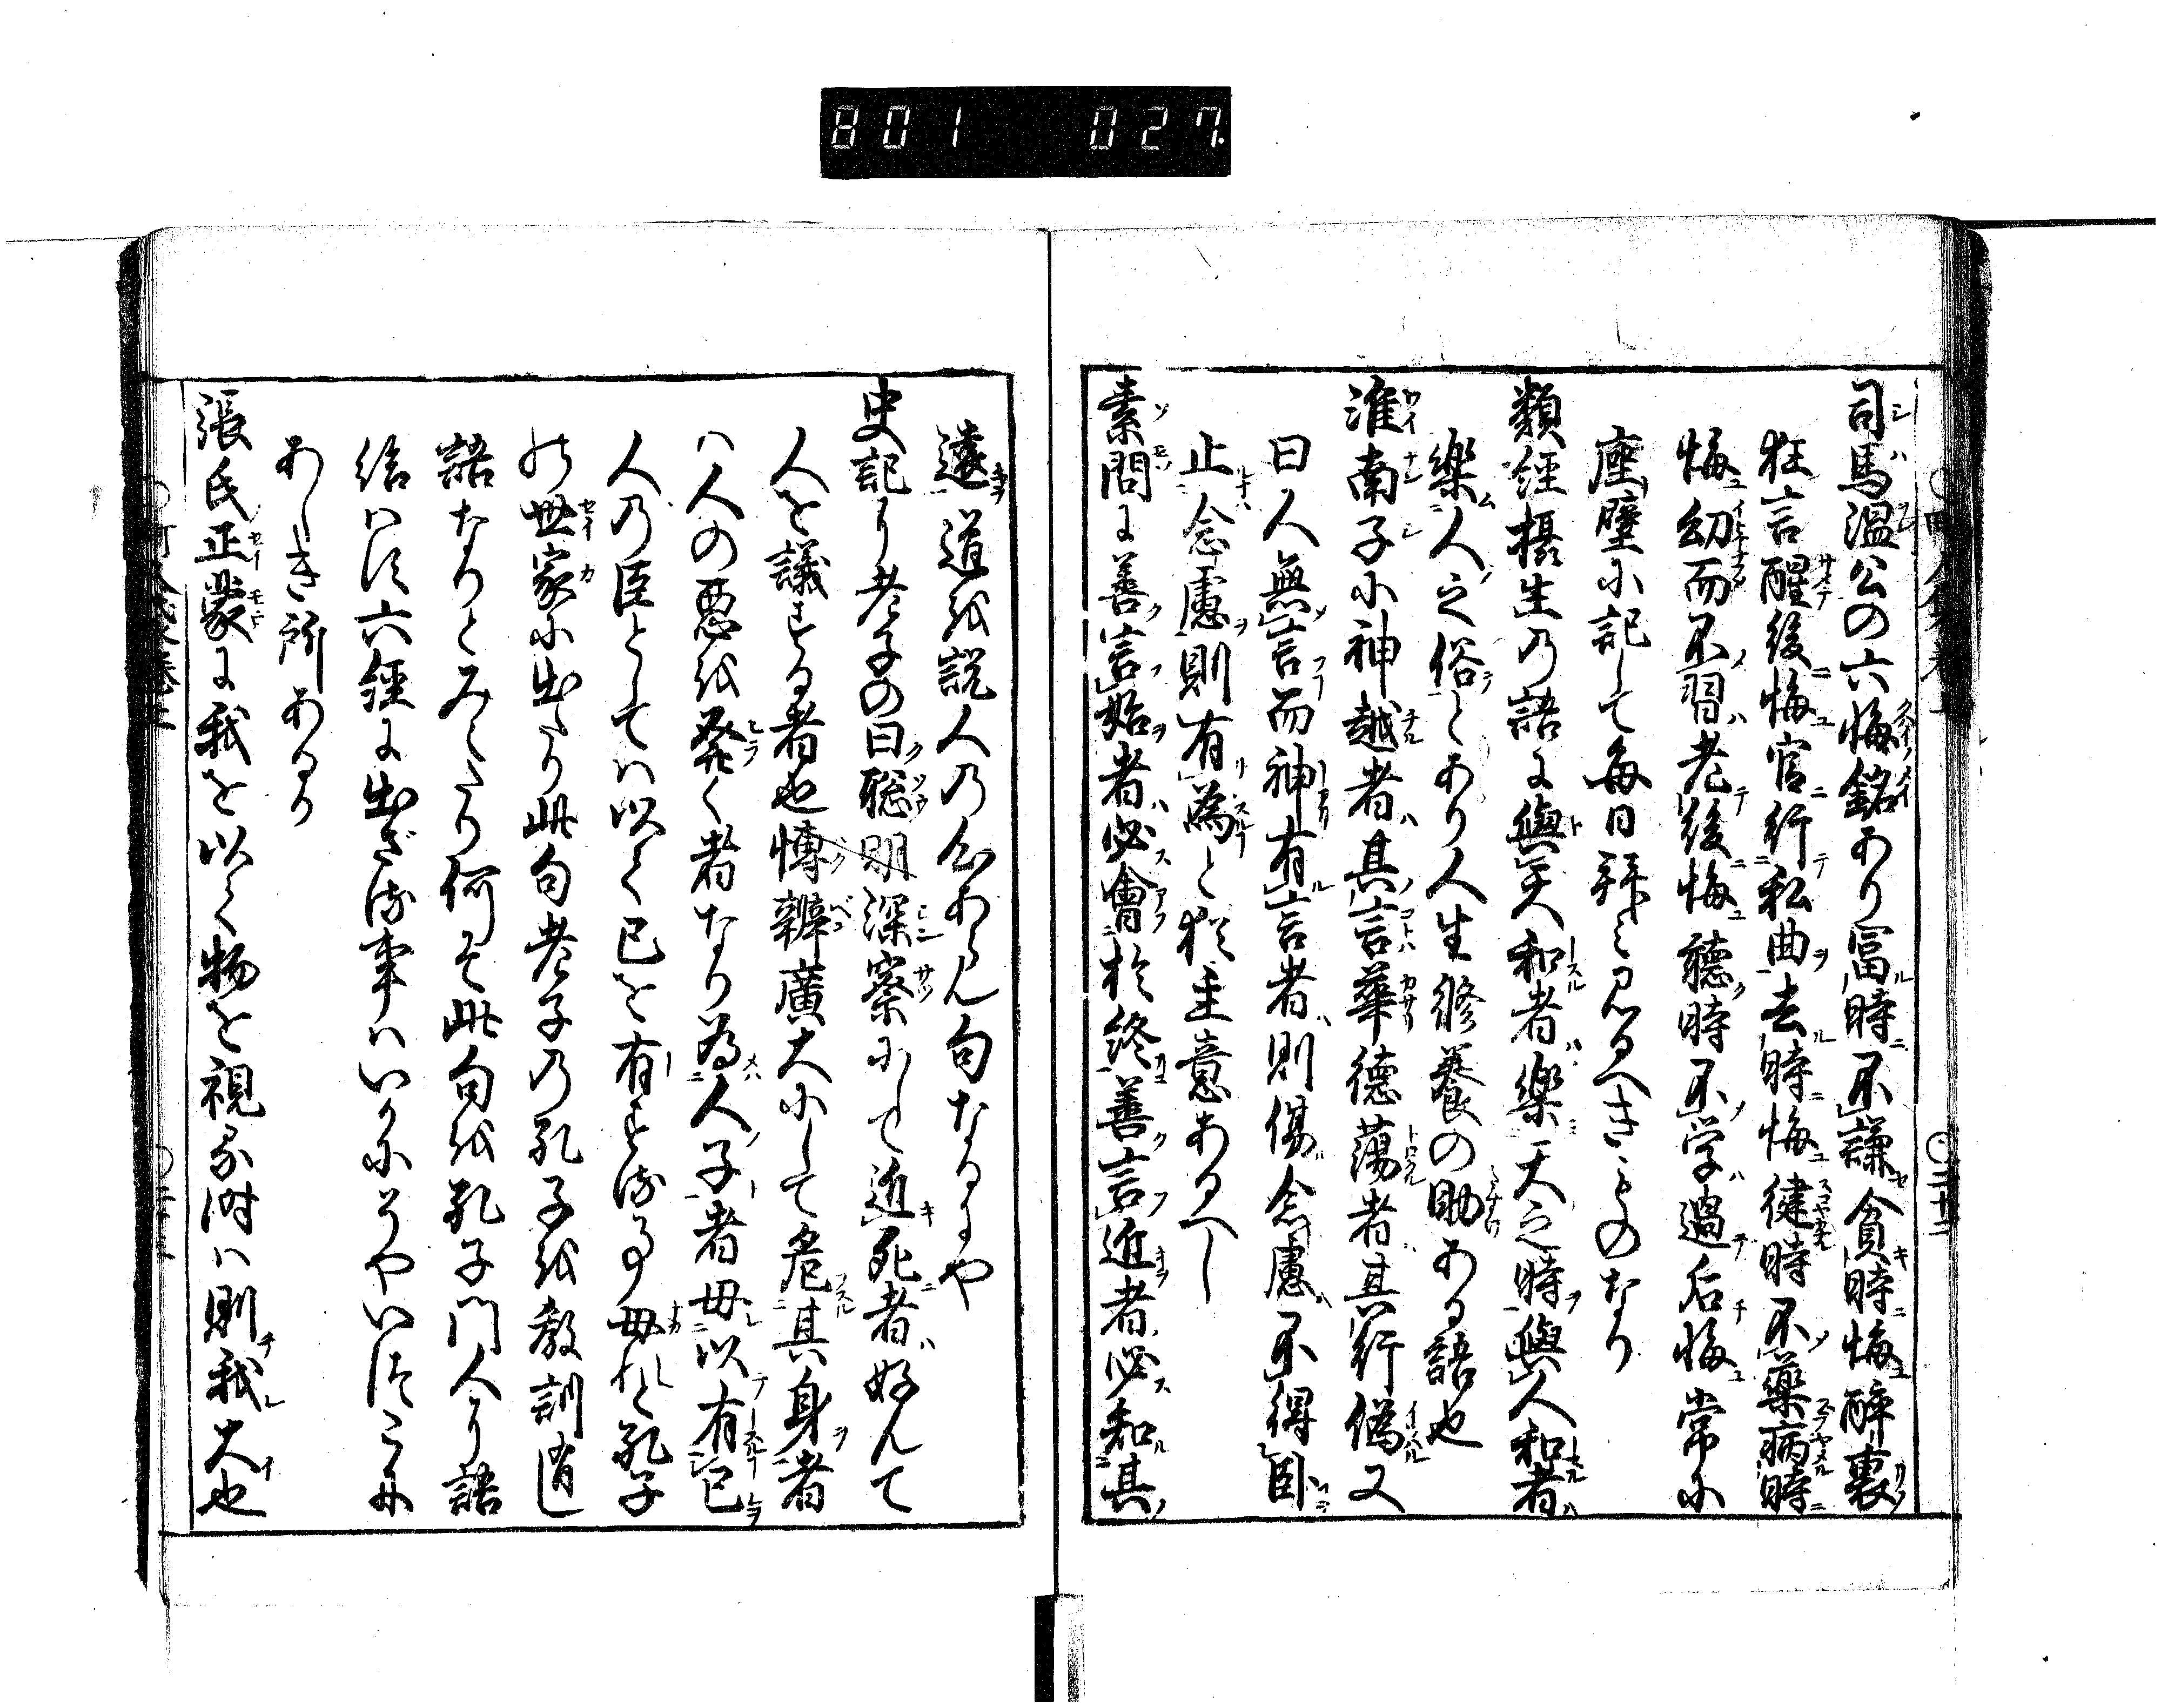 801 027
司馬温公の六悔銘あり冨時不謙貪時悔酔裏
狂言醒後悔官行私曲去時悔健時不薬病時
悔幼而不習老後悔聴時不学過后悔常に
座壁に記して毎日拝し見るへきものなり
類経摂生の語に與天和者楽天之時與人和者
楽人之俗とあり人生修養の助ある語也
淮南子に神越者其言華徳蕩者其行偽又
曰人無言而神有言者則傷念慮不得臥
止念慮則有為と猶主意あるへし
素問に善言始者必會於終善言近者必知其
遠道を説人の会あらん句なるにや
史記に老子の曰聡明深察にして近死者好んて
人を議する者也博辨廣大にして危其身者
ハ人の悪を発く者なり為人子者毋以有已
人の臣としてハ以て已を有する事毋れと孔子
の世家に出たり此句老子の孔子を教訓の
語なりとみえたり何そ此句を孔子門人に語
給ハす六経に出さる事ハいかにそや
あしき所あるか
張氏正蒙に我を以て物を視る時ハ則我大也